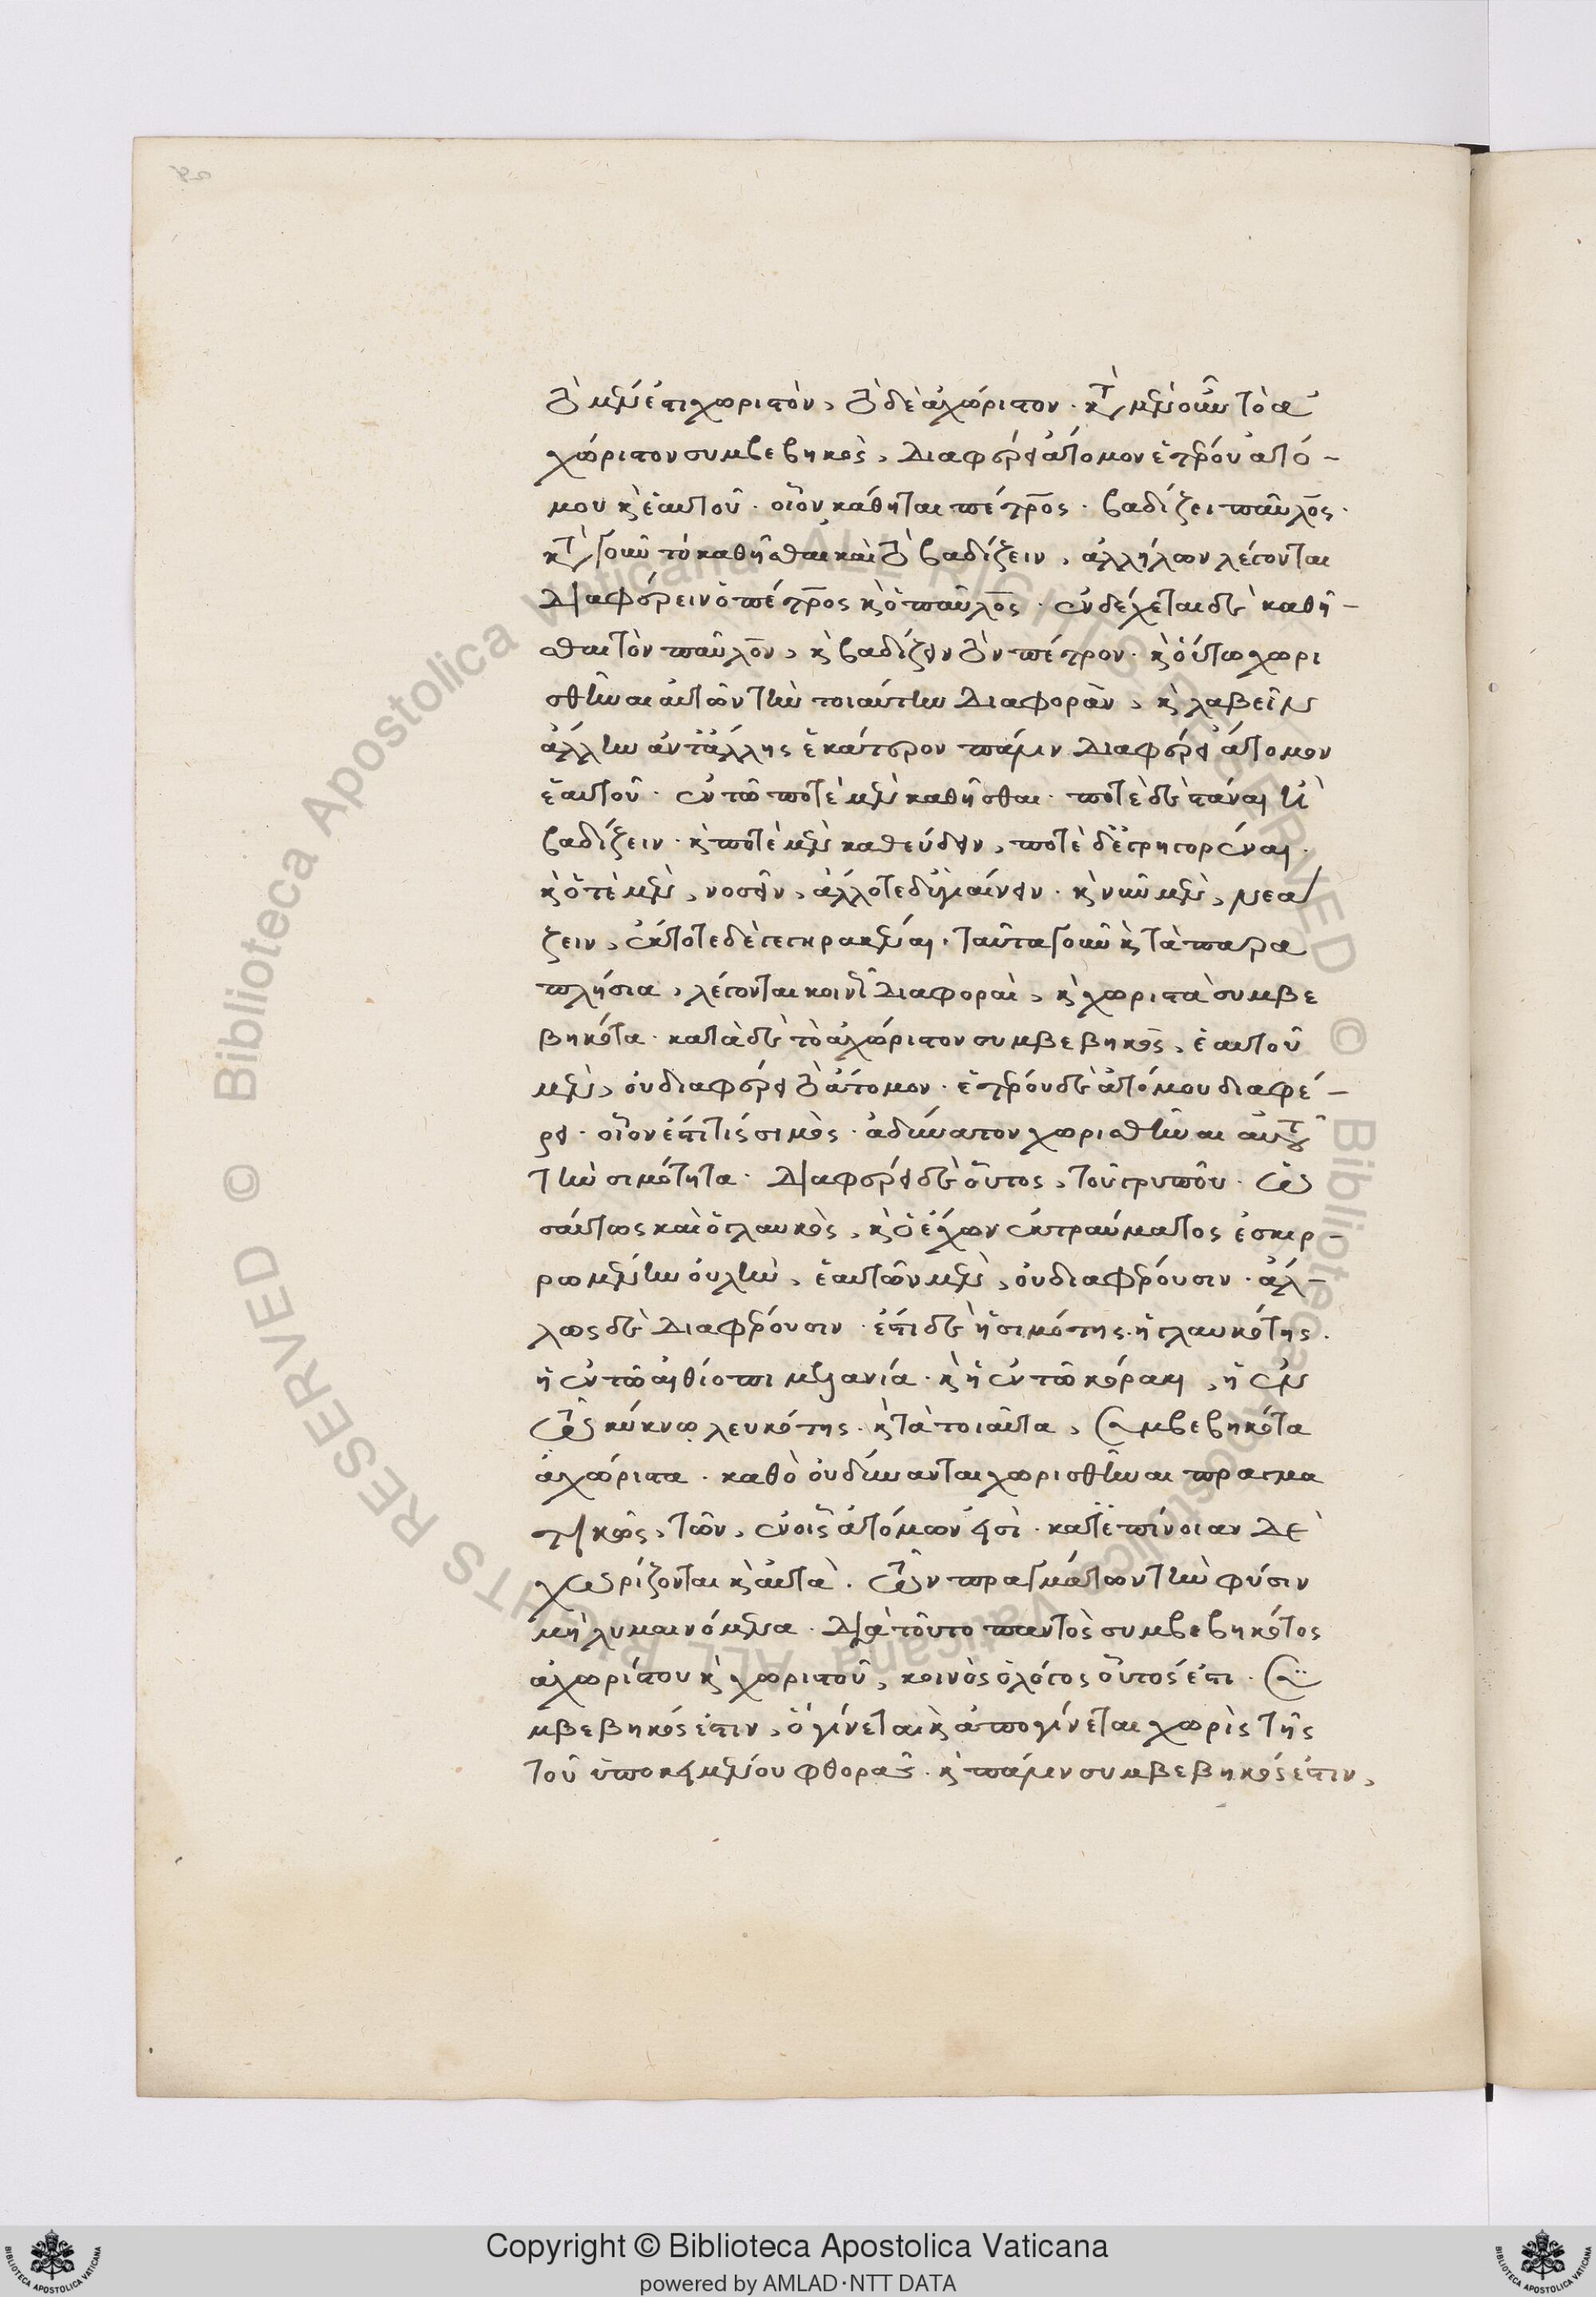 τὸ μέν ἐστι χωριστὸν, τὸ δὲ ἀχώριστον. κατὰ μὲν οὖν τὸ ἀ
χώριστον συμβεβηκὸς, διαφέρει ἄτομον ἑτέρου ἀτό-
μου κ ἑαυτοῦ. οἷον κάθηται πέτρος. βαδίζει παῦλος.
κατὰ γοῦν τὸ καθῆσθαι καὶ τὸ βαδίζειν, ἀλλήλων λέγονται
διαφέρειν ὁ πέτρος κ ὁ παῦλος. ἐνδέχεται δὲ καθῆ-
σθαι τὸν παῦλον, κ βαδίζειν τὸν πέτρον. κ οὕτω χωρι
σθῆναι αὐτῶν τὴν τοιαύτην διαφορὰν, κ λαβεῖν
ἄλλην ἀντ' ἄλλης ἑκάτερον πάλιν διαφέρει ἄτομον
ἑαυτοῦ. ἐν τῶ ποτὲ μὲν καθῆσθαι. ποτὲ δὲ στάναι ἢ
βαδίζειν. κ ποτὲ μὲν καθεύδειν, ποτὲ δ' ἐγρηγορέναι.
κ ὁτὲ μὲν, νοσεῖν, ἄλλοτε δ' ὑγιαίνειν. κ νῦν μὲν, νεά
ζειν, ἔκτοτε δὲ γεγηρακέναι. ταῦτα γοῦν κ τὰ παρα
πλήσια, λέγονται κοιναὶ διαφοραὶ, κ χωριστὰ συμβε
βηκότα. κατὰ δὲ τὸ ἀχώριστον συμβεβηκὸς, ἑαυτοῦ
μὲν, οὐ διαφέρει τὸ ἄτομον. ἑτέρου δὲ ἀτόμου διαφέ-
ρει. οἷον ἐστί τις σιμὸς. ἀδύνατον χωρισθῆναι αὐτοῦ
τὴν σιμότητα. διαφέρει δὲ οὗτος, τοῦ γρυποῦ. ὡ
σαύτως καὶ ὁ γλαυκὸς, κ ὁ ἔχων ἐκ τραύματος ἐσκιρ-
ρωμένην οὐλὴν, ἑαυτῶν μὲν, οὐ διαφέρουσιν. ἄλ-
λως δὲ διαφέρουσιν. ἐστὶ δὲ ἡ σιμότης. ἡ γλαυκότης.
ἡ ἐν τῶ αἰθίοπι μελανία. κ ἡ ἐν τῶ κόρακι, ἡ ἐν
τῶ κύκνω λευκότης. κ τὰ τοιαῦτα, συμβεβηκότα
ἀχώριστα. καθὸ οὐ δύνανται χωρισθῆναι πραγμα
τικῶς, τῶν, ἐν οἷς ἀτόμων εἰσὶ. κατ' ἐπίνοιαν δὲ
χωρίζονται κ αὐτὰ. τῶν πραγμάτων τὴν φύσιν
μὴ λυμαινόμενα. διὰ τοῦτο παντὸς συμβεβηκότος
ἀχωρίστου κ χωριστοῦ, κοινὸς ὁ λόγος οὗτος ἐστι. συ
μβεβηκός ἐστιν, ὃ γίνεται κ ἀπογίνεται χωρὶς τῆς
τοῦ ὑποκειμένου φθορᾶς. κ πάλιν συμβεβηκός ἐστιν,
Copyright © Biblioteca Apostolica Vaticana
powered by AMLAD·NTT DATA